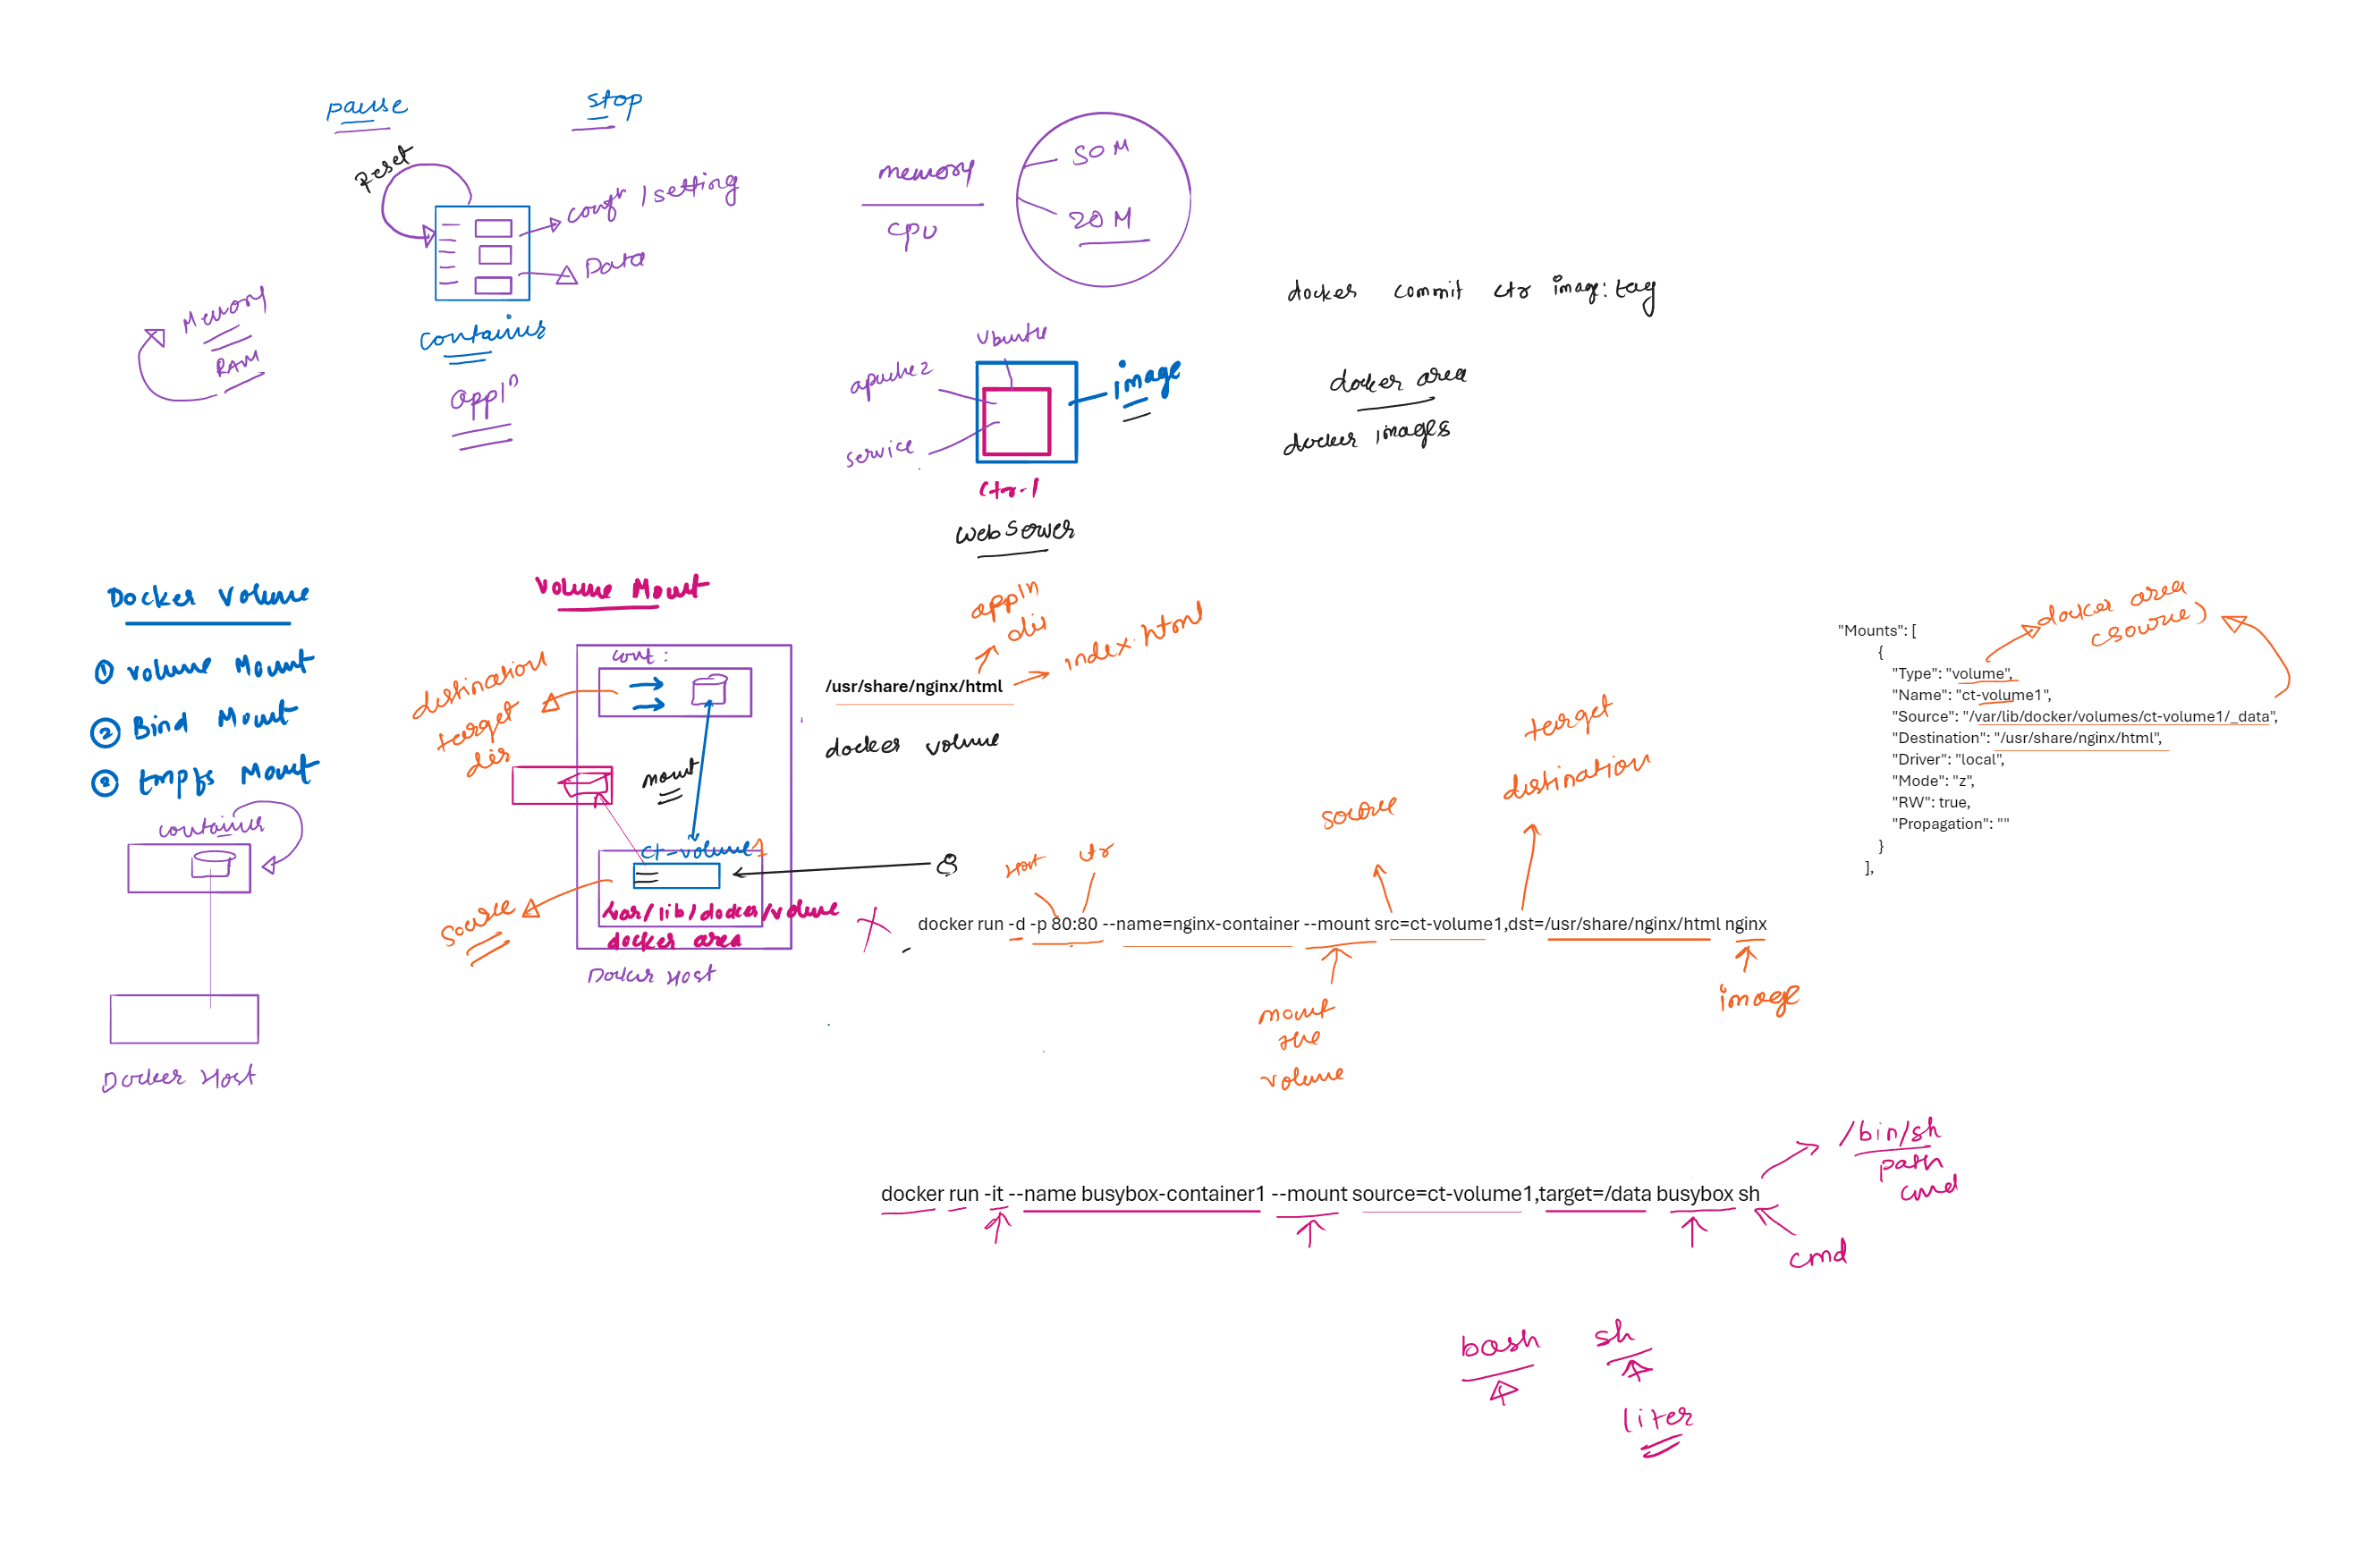 pause
stop
Reset
confn / setting
Data
Memory
RAM
container
appln
memory
cpu
50 M
20 M
docker commit ctr image:tag
docker area
docker images
ubuntu
apache2
service
image
ctr-1
web server
Docker Volume
① volume Mount
② Bind Mount
③ tmpfs Mount
container
Docker Host
Volume Mount
cont:
destination
target
dir
mount
ct-volume1
source
/var/lib/docker/volume
docker area
Docker Host
appln
dir
/usr/share/nginx/html
index.html
docker volume
Host
ctr
source
target
destination
docker run -d -p 80:80 --name=nginx-container --mount src=ct-volume1,dst=/usr/share/nginx/html nginx
mount
the
volume
image
docker area
(source)
"Mounts": [
{
"Type": "volume",
"Name": "ct-volume1",
"Source": "/var/lib/docker/volumes/ct-volume1/_data",
"Destination": "/usr/share/nginx/html",
"Driver": "local",
"Mode": "z",
"RW": true,
"Propagation": ""
}
],
/bin/sh
path
cmd
docker run -it --name busybox-container1 --mount source=ct-volume1,target=/data busybox sh
cmd
bash
sh
liter